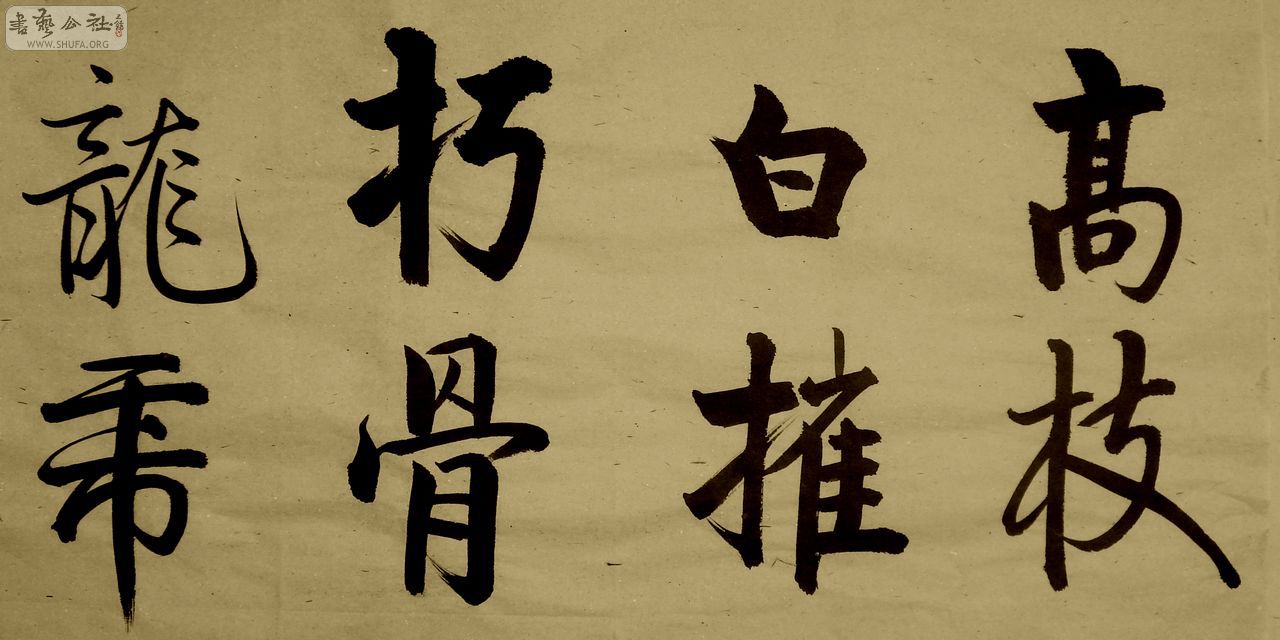 高枝
白摧
朽骨
龍虎
書藝公社
WWW.SHUFA.ORG